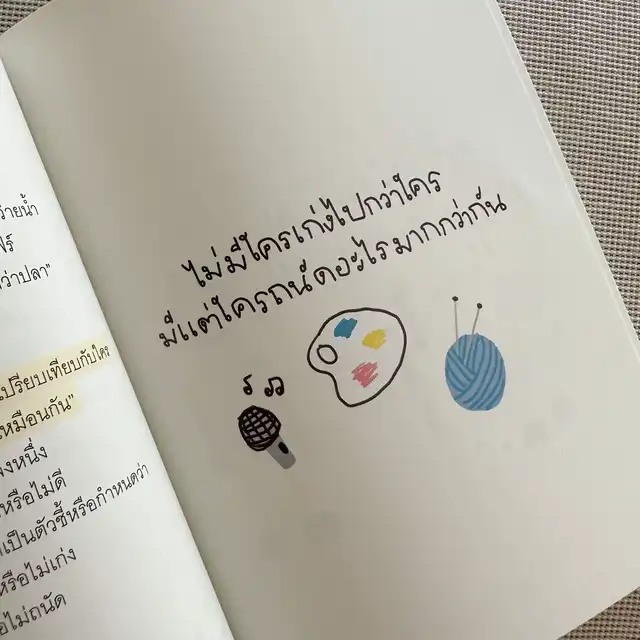 ว่ายน้ำ
ว่าปลา"
เปรียบเทียบกับใคร
เหมือนกัน"
หนึ่ง
หรือไม่ดี
เป็นตัวชี้หรือกำหนดว่า
หรือไม่เก่ง
ไม่ถนัด
ไม่มีใครเก่งไปกว่าใคร
มีแต่ใครถนัดอะไรมากกว่ากัน